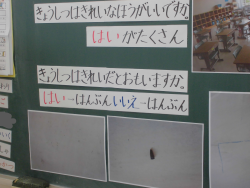 きょうしつはきれいなほうがいいですか。
はいがたくさん
きょうしつはきれいだとおもいますか。
はい→はんぶん いいえ→はんぶん